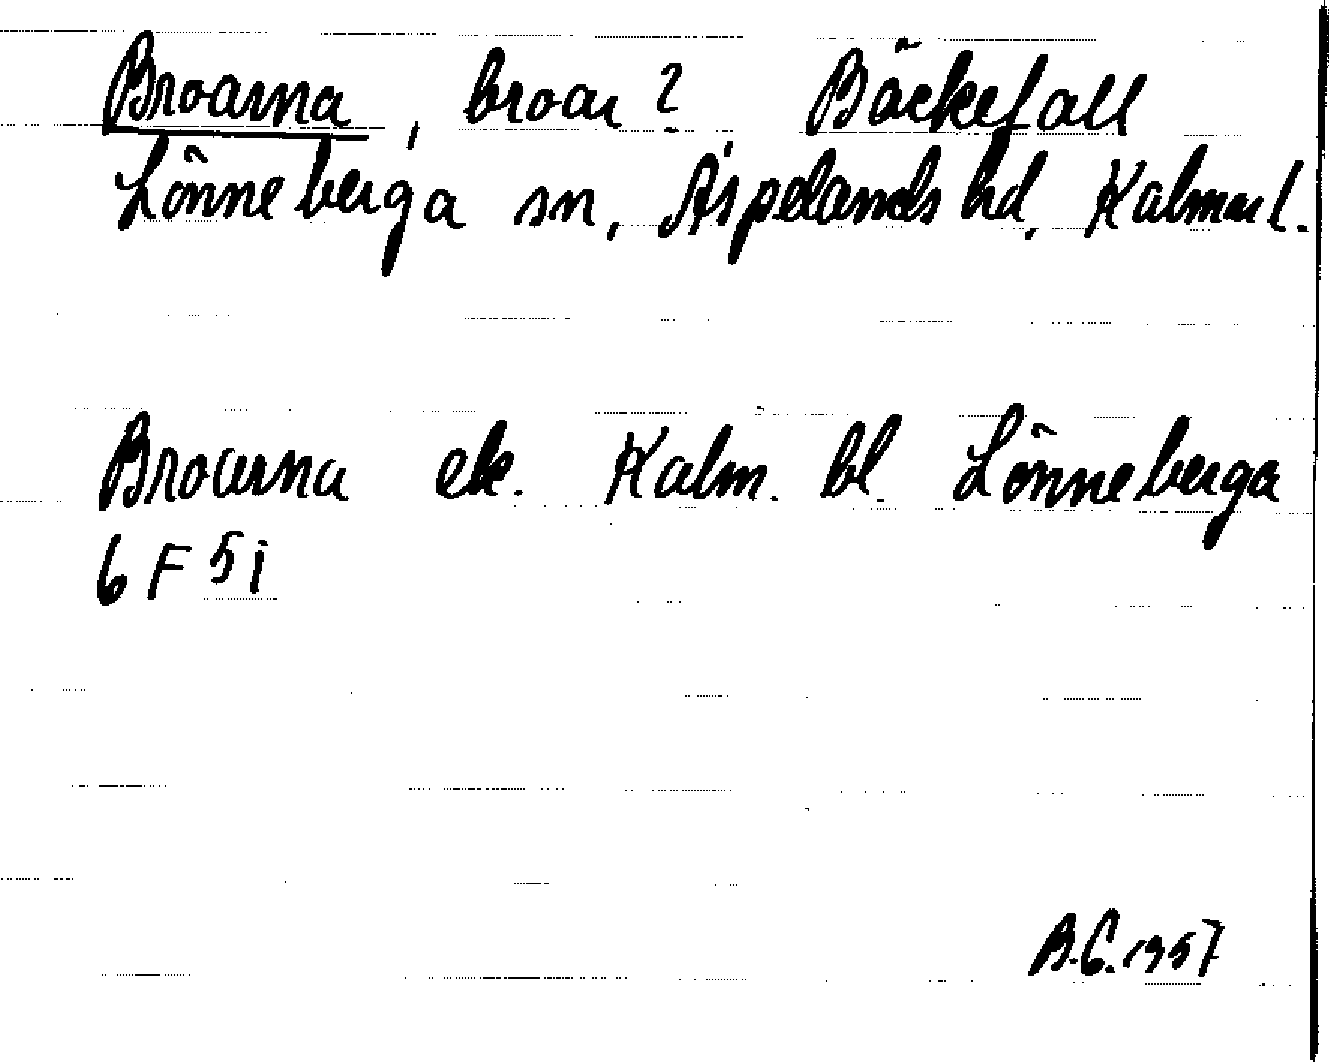 Broarna, broar? Bäckefall
Lönneberga sn, Aspelands hd, Kalmar l.
Broarna ek. Kalm. bl. Lönneberga
6 F 5i
B.G. 1957